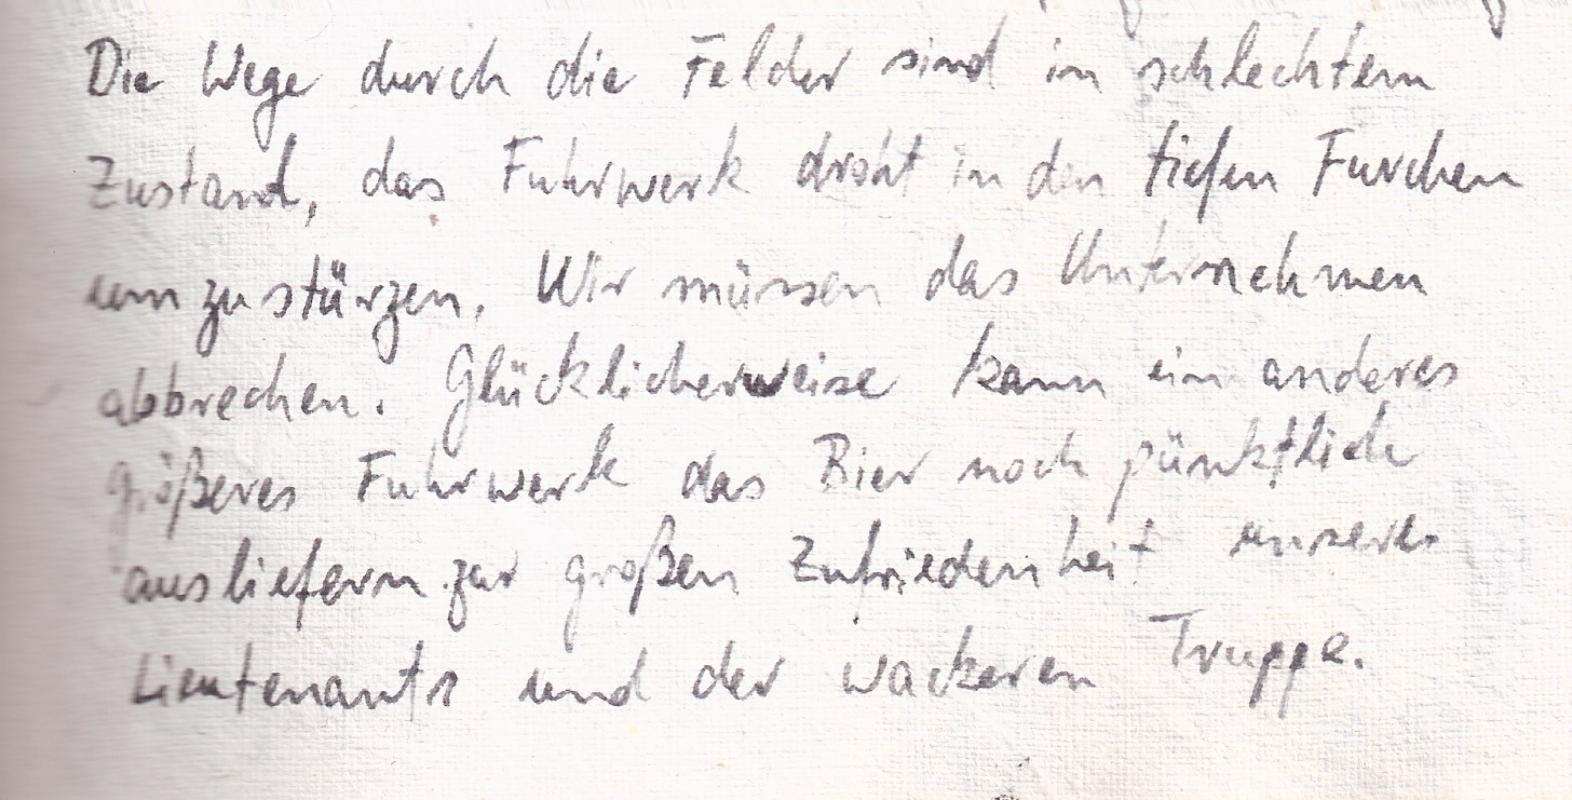 Die Wege durch die Felder sind in schlechtem
Zustand, das Fuhrwerk droht in den tiefen Furchen
umzustürzen. Wir müssen das Unternehmen
abbrechen. Glücklicherweise kann ein anderes
größeres Fuhrwerk das Bier noch pünktlich
ausliefern zur großen Zufriedenheit unseres
Lieutenants und der wackeren Truppe.